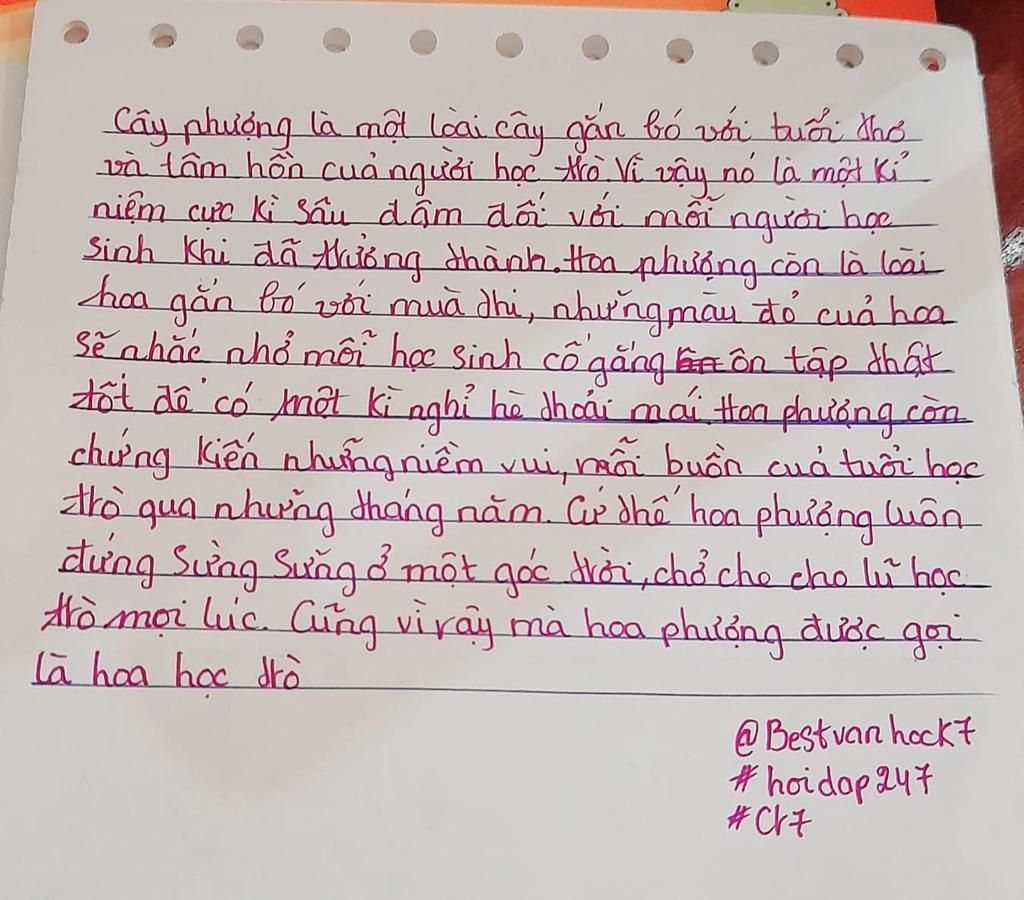 Cây phượng là một loài cây gắn bó với tuổi thơ
và tâm hồn của người học trò. Vì vậy nó là một kỉ
niệm cực kì sâu đậm đối với mỗi người học
sinh khi đã trưởng thành. Hoa phượng còn là loài
hoa gắn bó với mùa thi, những màu đỏ của hoa
sẽ nhắc nhở mỗi học sinh cố gắng ôn tập thật
tốt để có một kì nghỉ hè thoải mái. Hoa phượng còn
chứng kiến những niềm vui, nỗi buồn của tuổi học
trò qua những tháng năm. Cứ thế hoa phượng luôn
đứng sừng sững ở một góc trời, chở che cho lũ học
trò mọi lúc. Cũng vì vậy mà hoa phượng được gọi
là hoa học trò
@Bestvanhock7
#hoidap247
#Cr7